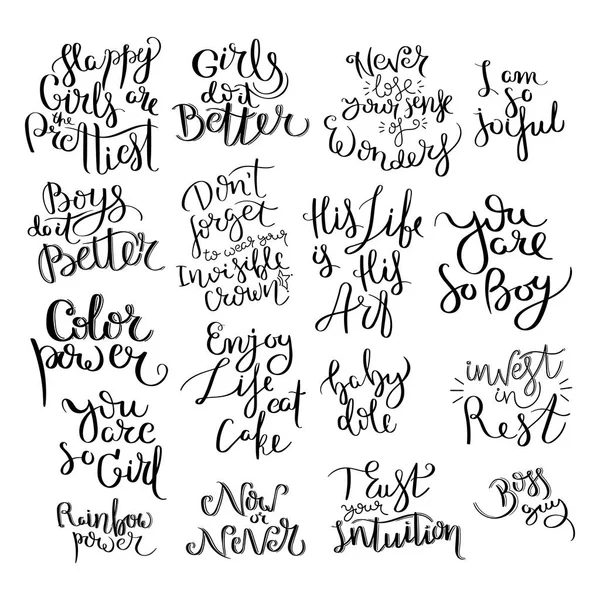 Happy
Girls are
the
Prettiest
Girls
do it
Better
Never
lose
your sense
of
Wonders
I am
so
joiful
Boys
do it
Better
Don't
forget
to wear your
Invisible
Crown
His Life
is His
Art
You
are
so Boy
Color
power
Enjoy
Life
eat
Cake
baby
dole
invest
in
Rest
You
are
so Girl
Rainbow
power
Now
or
Never
Trust
your
intuition
Boss
guy